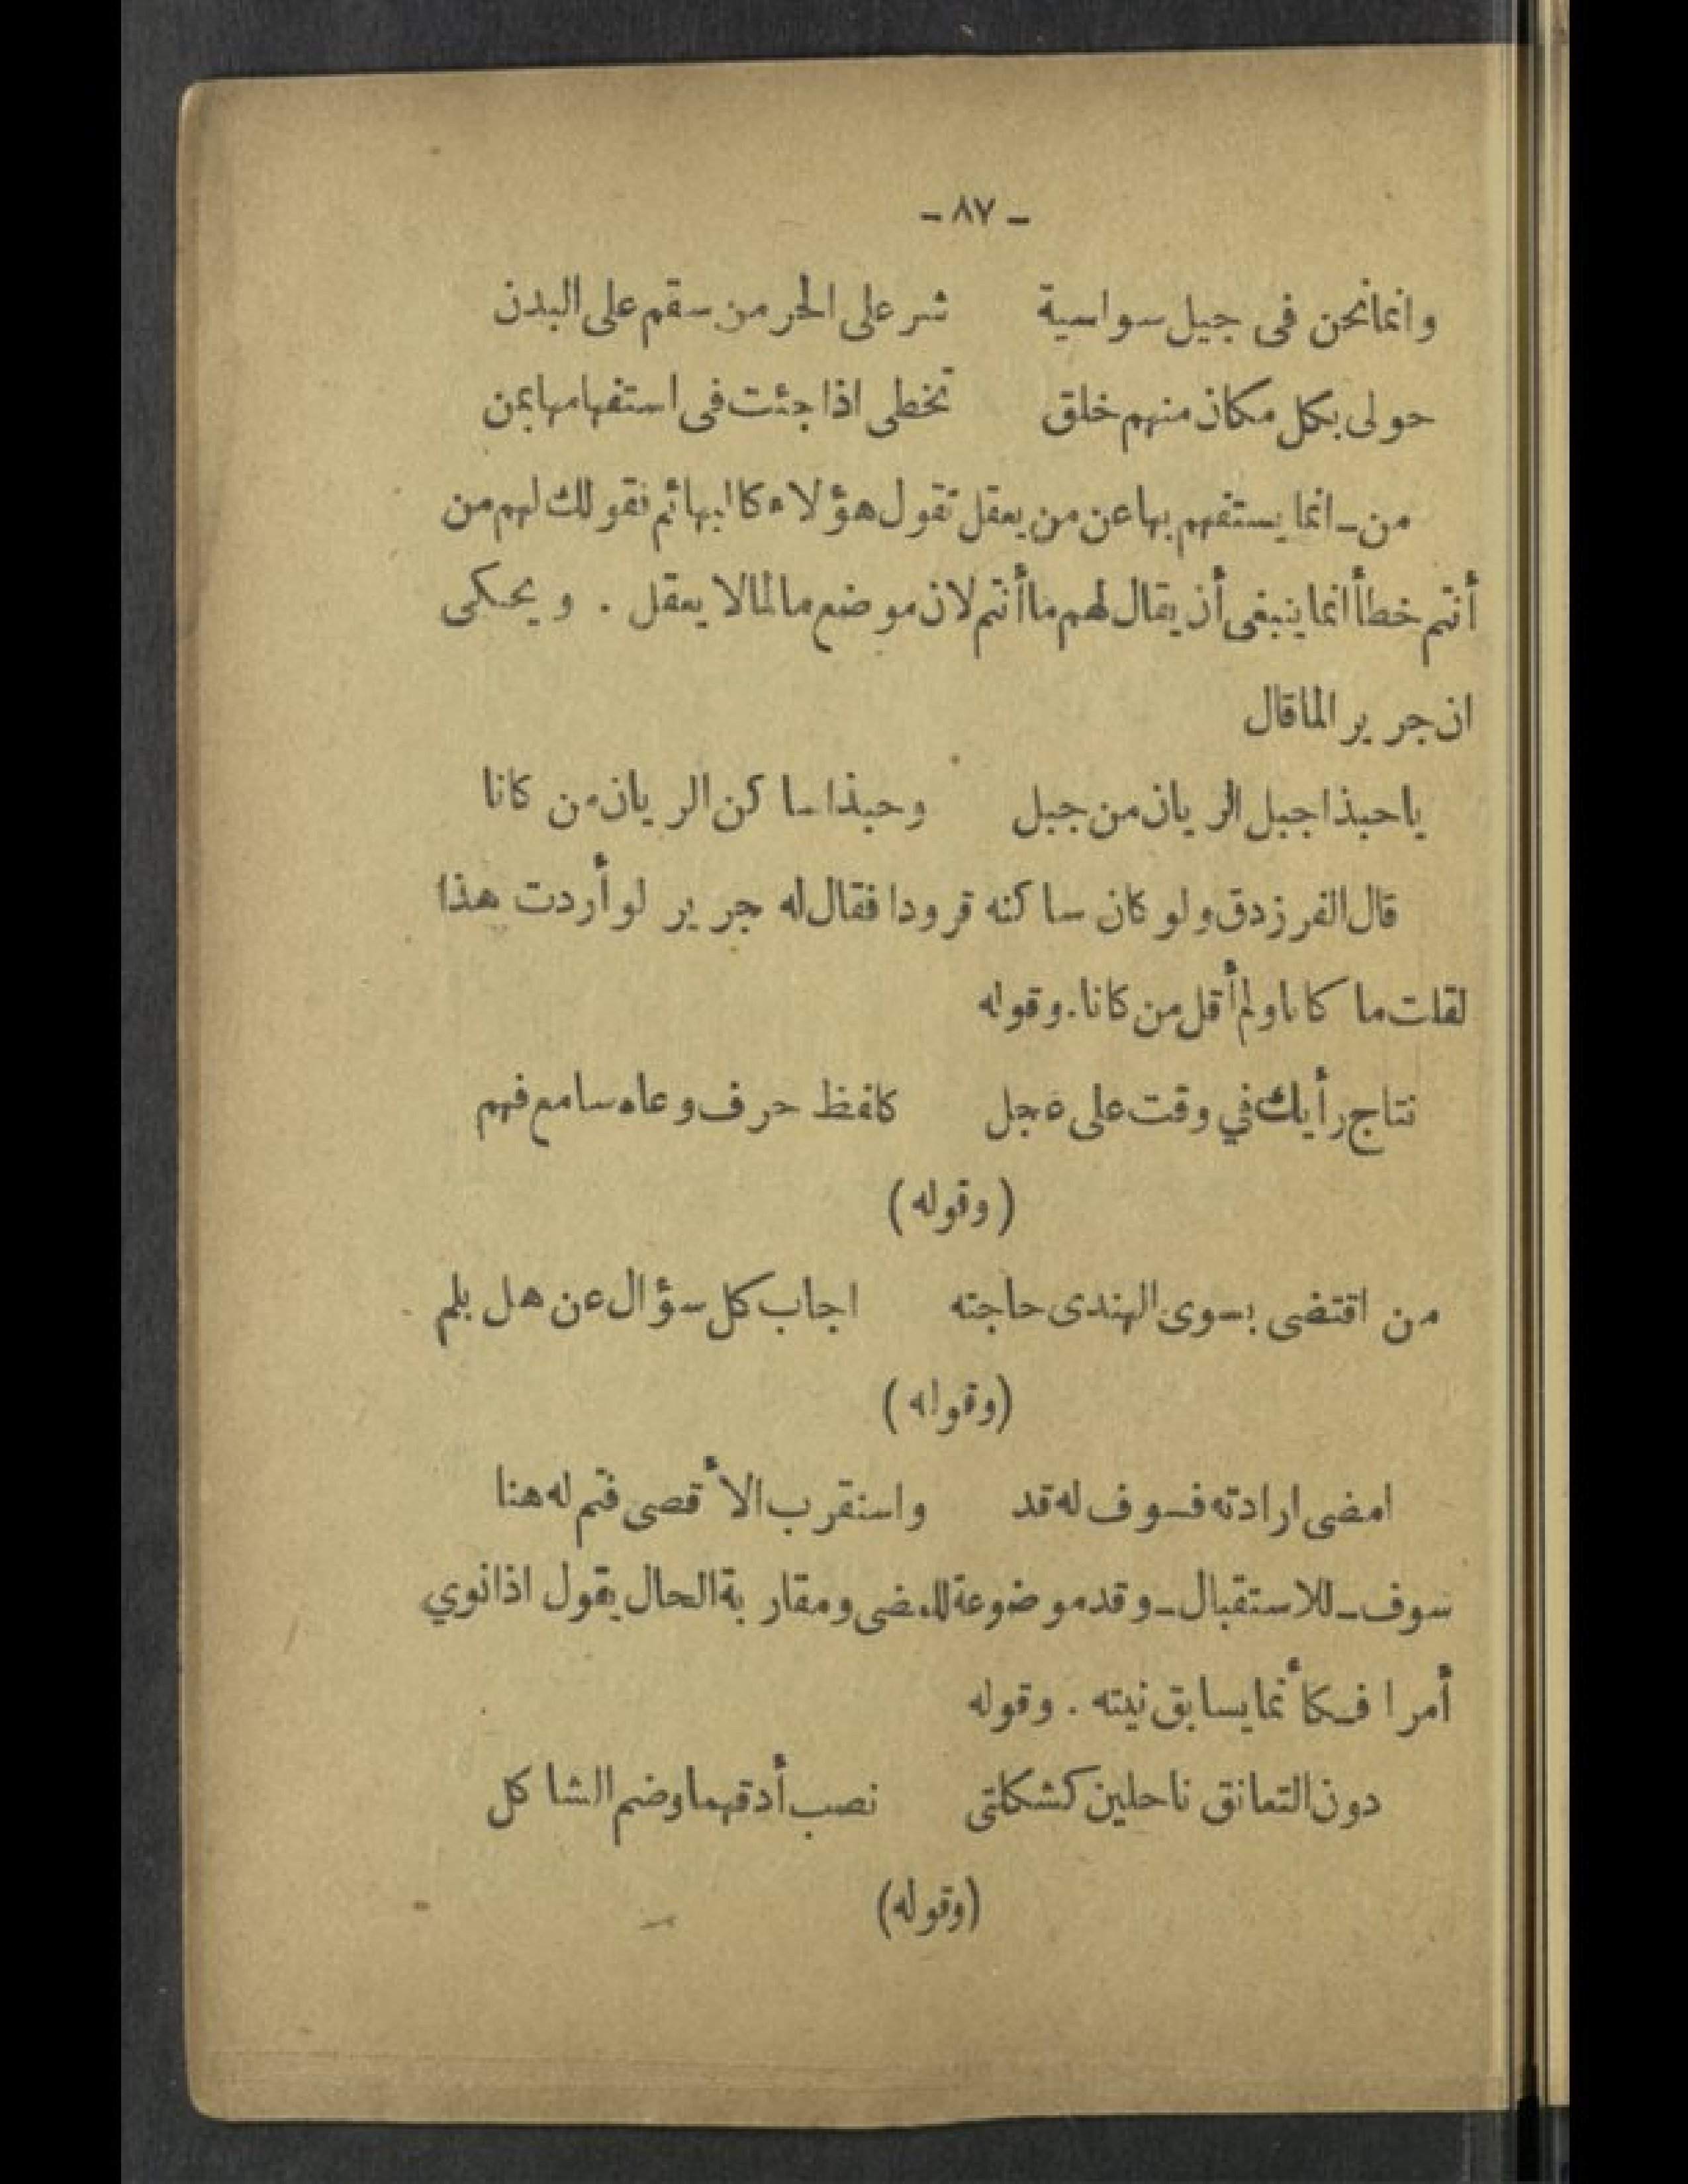 - ٨٧ -
وانما نحن فى جيل سواسية شر على الحر من سقم على البدن
حولى بكل مكان منهم خلق تخطى اذا جئت فى استفهامها بمن
من ـ انما يستفهم بها عن من يعقل تقول هؤلاء كالبهائم فقولك لهم من
أنتم خطأ انما ينبغى أن يقال لهم ما أنتم لان موضع ما لما لا يعقل . ويحكى
ان جرير الما قال
يا حبذا جبل الريان من جبل وحبذا ساكن الريان من كانا
قال الفرزدق ولو كان ساكنه قرودا فقال له جرير لو أردت هذا
لقلت ما كانا ولم أقل من كانا. وقوله
نتاج رأيك في وقت على عجل كلفظ حرف وعاه سامع فهم
(وقوله)
من اقتضى بسوى الهندى حاجته اجاب كل سؤال عن هل بلم
(وقوله)
امضى ارادته فسوف له قد واستقرب الأقصى فثم له هنا
سوف ـ للاستقبال ـ وقد موضوعة للمضى ومقاربة الحال يقول اذا نوي
أمرا فكأنما يسابق نيته . وقوله
دون التعانق ناحلين كشكلتى نصب أدقهما وضم الشاكل
(وقوله)